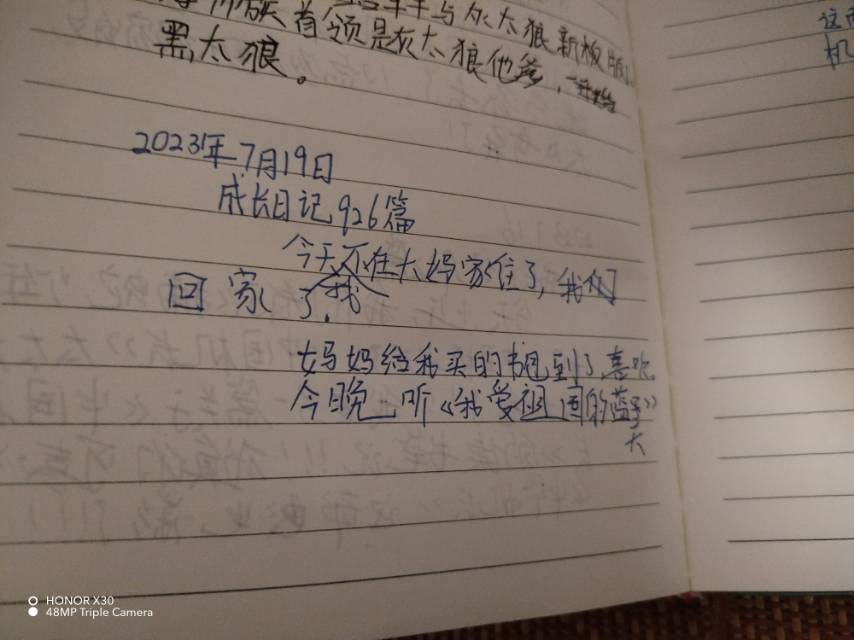 族首领是灰太狼他爹,
黑太狼。
2023年7月19日
成长日记926篇
今天不在大妈家住了,我们
回家了。我
妈妈给我买的书包到了,喜欢
今晚听《我爱祖国的蓝天》
HONOR X30
48MP Triple Camera